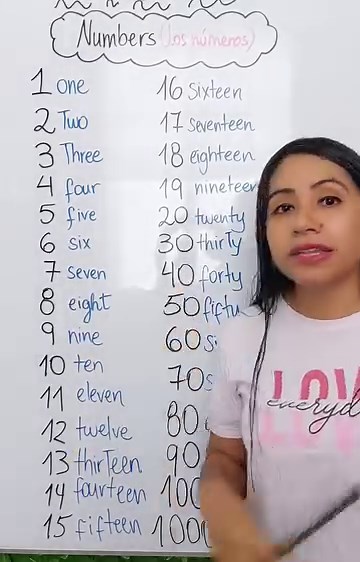 Numbers (los números)
1 one
2 Two
3 Three
4 four
5 five
6 six
7 seven
8 eight
9 nine
10 ten
11 eleven
12 twelve
13 thirTeen
14 fourteen
15 fifteen
16 sixteen
17 seventeen
18 eighteen
19 nineteen
20 twenty
30 thirTy
40 forty
50 fifty
60
70
80
90
100
1000
LOV
everyd
LOV